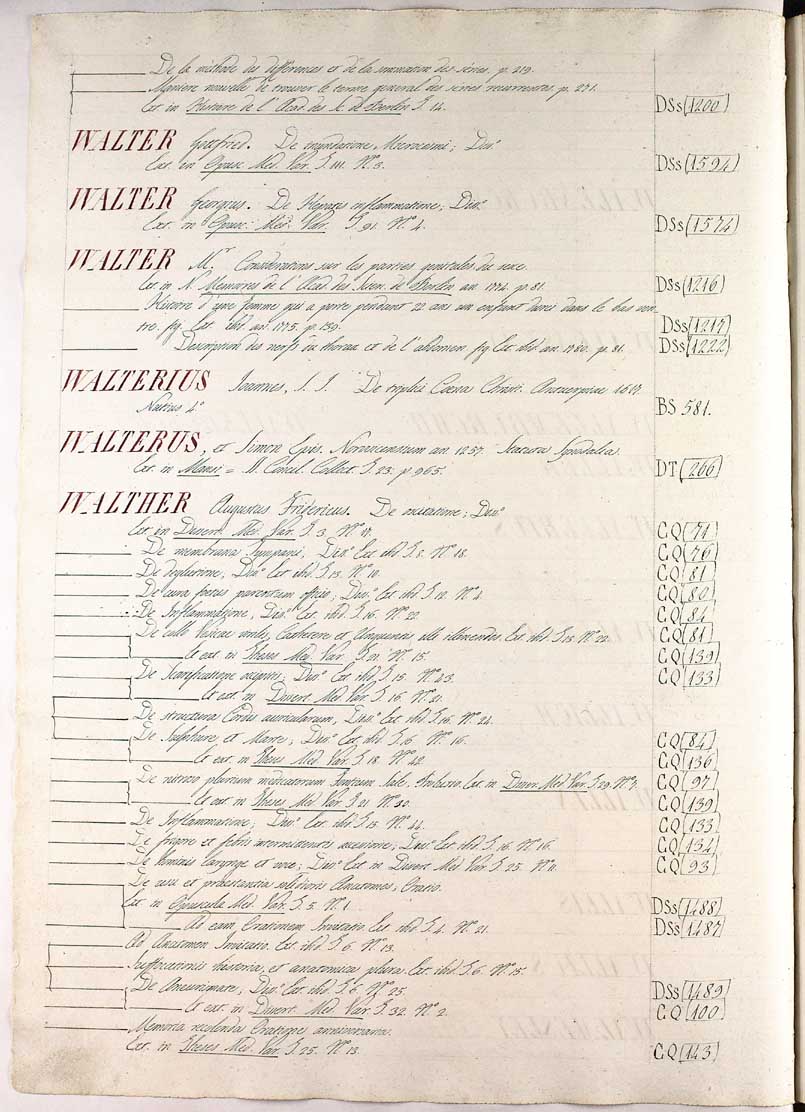 De la méthode des differences et de la sommation des séries. p. 219.
Maniere nouvelle de trouver le terme general des séries recurrentes. p. 271.
Ext. in Histoire de l'Acad. des Sc. de Berlin T. 14. DSs (1200)
WALTER Gotfried. De inundatione Microcosmi; Diss.
Ext. in Opusc. Med. Var. T. 111. N.º 3. DSs (1594)
WALTER Georgius. De Hepatis inflammatione; Diss.
Ext. in Opusc. Med. Var. T. 91. N.º 4. DSs (1574)
WALTER M.r Considerations sur les parties genitales de sexe.
Ext. in N. Memoires de l'Acad. des Scien. de Berlin an. 1774. p. 81. DSs (1216)
Histoire d'une femme qui a porte pendant 22 ans un enfant durci dans le bas ven-
tre. fig. Ext. ibid. an. 1775. p. 139. DSs (1217)
Description des nerfs du thorax et de l'abdomen fig. Ext. ibid. an. 1780. p. 81. DSs (1222)
WALTERIUS Joannes, S. I. De triplici Coena Christi. Antuerpiae 1617.
Nutius 4.º BS 581.
WALTERUS, et Simon Epis. Norvicensium an. 1257. Statuta Synodalia.
Ext. in Mansi = SS. Concil. Collect. T. 23. p. 965. DT (266)
WALTHER Augustus Fridericus. De Diss.
Ext. in Divert. Med. Var. T. 3. N.º 17. CQ (71)
De membrana tympani; Diss. Ext. ibid. T. 8. N.º 18. CQ (76)
De deglutitione; Diss. Ext. ibid. T. 13. N.º 10. CQ (81)
De cura foetus parentum officio; Diss. Ext. ibid. T. 12. N.º 4. CQ (80)
De Inflammatione; Diss. Ext. ibid. T. 16. N.º 22. CQ (84)
De collo Vesicae virilis, Cathetere et Unguentis illi Ext. ibid. T. 13. N.º 22. CQ (81)
Et ext. in Theses Med. Var. T. 21. N.º 15. CQ (139)
De Scarificatione occipitis; Diss. Ext. ibid. T. 15. N.º 43. CQ (133)
Et ext. in Divert. Med. Var. T. 16. N.º 21.
De structura Cordis auricularum; Diss. Ext. ibid. T. 16. N.º 24.
De Sulphure et Marte; Diss. Ext. ibid. T. 16. N.º 16. CQ (84)
Et ext. in Theses Med. Var. T. 18. N.º 42. CQ (136)
De nitroso plurium medicatorum Fontium Sale. Ext. in Divert. Med. Var. T. 29. N.º 7. CQ (97)
Et ext. in Theses Med. Var. T. 21. N.º 30. CQ (139)
De Inflammatione; Diss. Ext. ibid. T. 15. N.º 44. CQ (133)
De frigore et febris intermittentis accessione; Diss. Ext. ibid. T. 16. N.º 16. CQ (134)
De hominis larynge et voce; Diss. Ext. in Divert. Med. Var. T. 25. N.º 11. CQ (93)
De usu et praestantia solidioris Anatomes; Oratio.
Ext. in Opuscula Med. Var. T. 5. N.º 1. DSs (1488)
Ad eam Orationem Invitatio. Ext. ibid. T. 4. N.º 21. DSs (1487)
Ad Anatomen Invitatio. Ext. ibid. T. 6. N.º 13.
Suffocationis historia, et anatomicae plurae. Ext. ibid. T. 6. N.º 15.
De Aneurismate; Diss. Ext. ibid. T. 6. N.º 25. DSs (1489)
Et ext. in Divert. Med. Var. T. 32. N.º 2. CQ (100)
Memoria recolenda Oratione anniversaria.
Ext. in Theses Med. Var. T. 25. N.º 13. CQ (143)